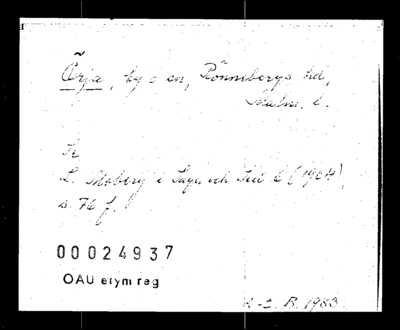 Örja, by o sn, Rönnebergs hd,
Malm. l.
Se
L. Moberg i Saga och Sed (1904),
s. 76 f.
00024937
OAU etym reg
B. 1983